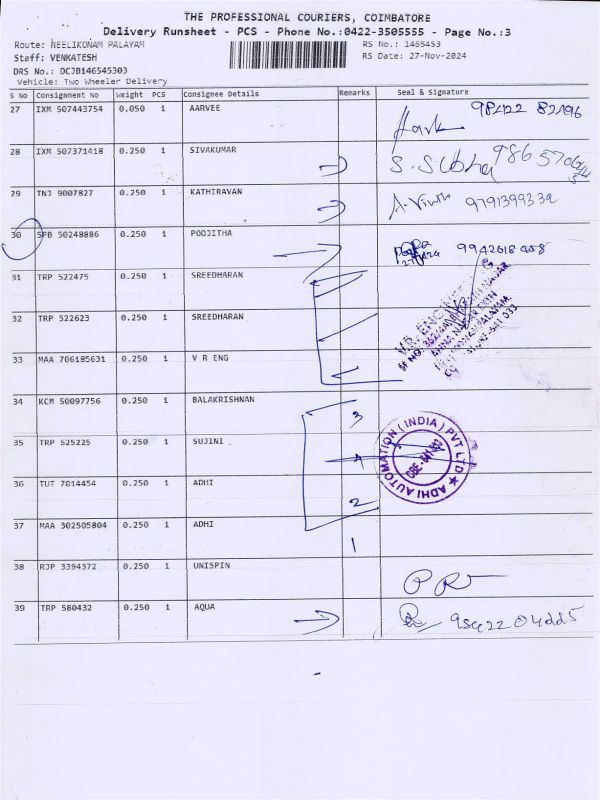 THE PROFESSIONAL COURIERS, COIMBATORE
Delivery Runsheet - PCS - Phone No.:0422-3505555 - Page No.:3
Route: NEELIKONAM PALAYAM
RS No.: 1465453
Staff: VENKATESH
RS Date: 27-Nov-2024
DRS No.: DCJB146545303
Vehicle: Two Wheeler Delivery
S No Consignment No Weight PCS Consignee Details Remarks Seal & Signature
27 IXM 507443754 0.050 1 AARVEE
28 IXM 507371418 0.250 1 SIVAKUMAR S. Subha
29 TNJ 9007827 0.250 1 KATHIRAVAN 9791399339
30 SPB 50248886 0.250 1 POOJITHA
31 TRP 522475 0.250 1 SREEDHARAN
32 TRP 522623 0.250 1 SREEDHARAN
33 MAA 706185631 0.250 1 V R ENG
34 KCM 50097756 0.250 1 BALAKRISHNAN 3
35 TRP 525225 0.250 1 SUJINI
36 TUT 7014454 0.250 1 ADHI 2
37 MAA 302505804 0.250 1 ADHI 1
ADHI AUTOMATION (INDIA) PVT LTD ★
38 RJP 3394372 0.250 1 UNISPIN
39 TRP 580432 0.250 1 AQUA